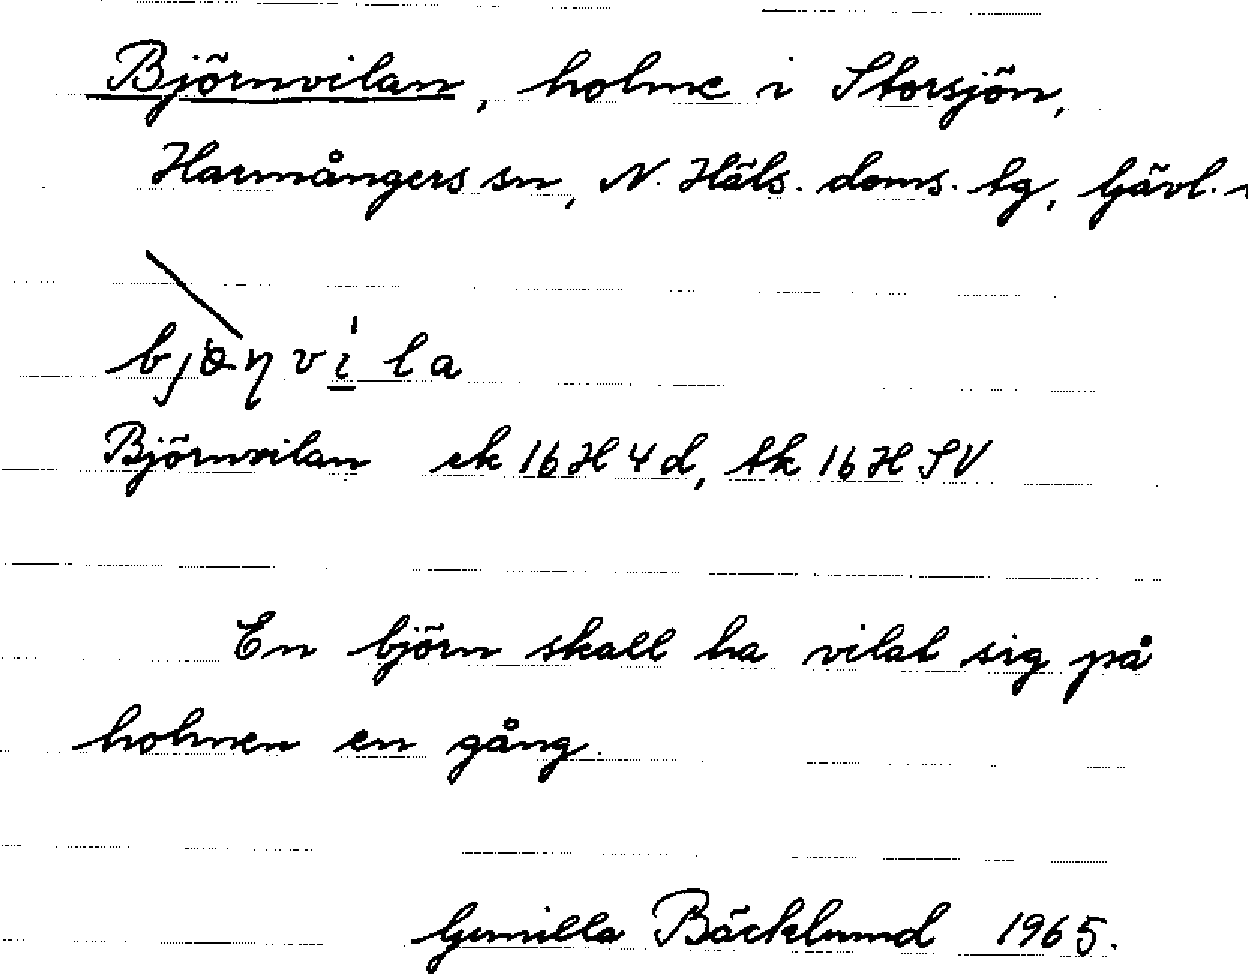 Björnvilan, holme i Storsjön,
Harmångers sn, N. Häls. doms. tg, Gävl.
Björnvilan ek 16H4d, tk 16H SV
En björn skall ha vilat sig på
holmen en gång.
Gunilla Bäcklund 1965.